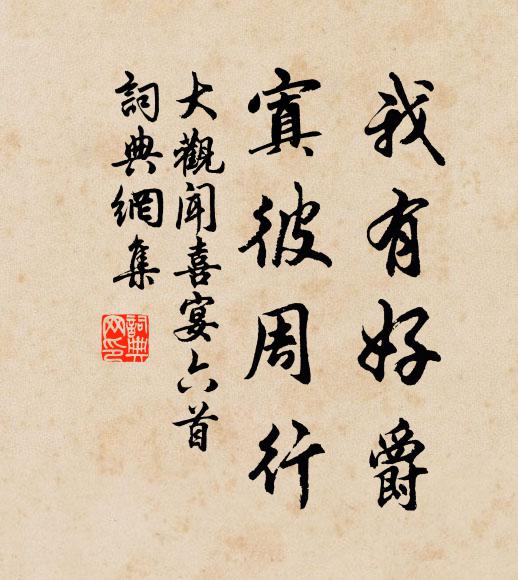 我有好爵
寘彼周行
大觀聞喜宴六首
詞典網集
詞典網印